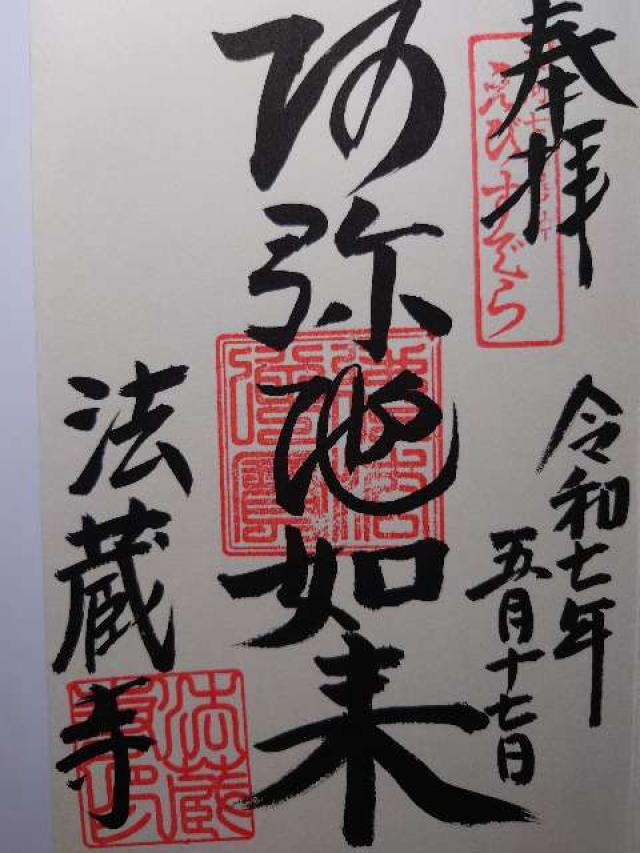 奉拝
えびすでら
令和七年
五月十七日
阿弥陀如来
法蔵寺
法蔵